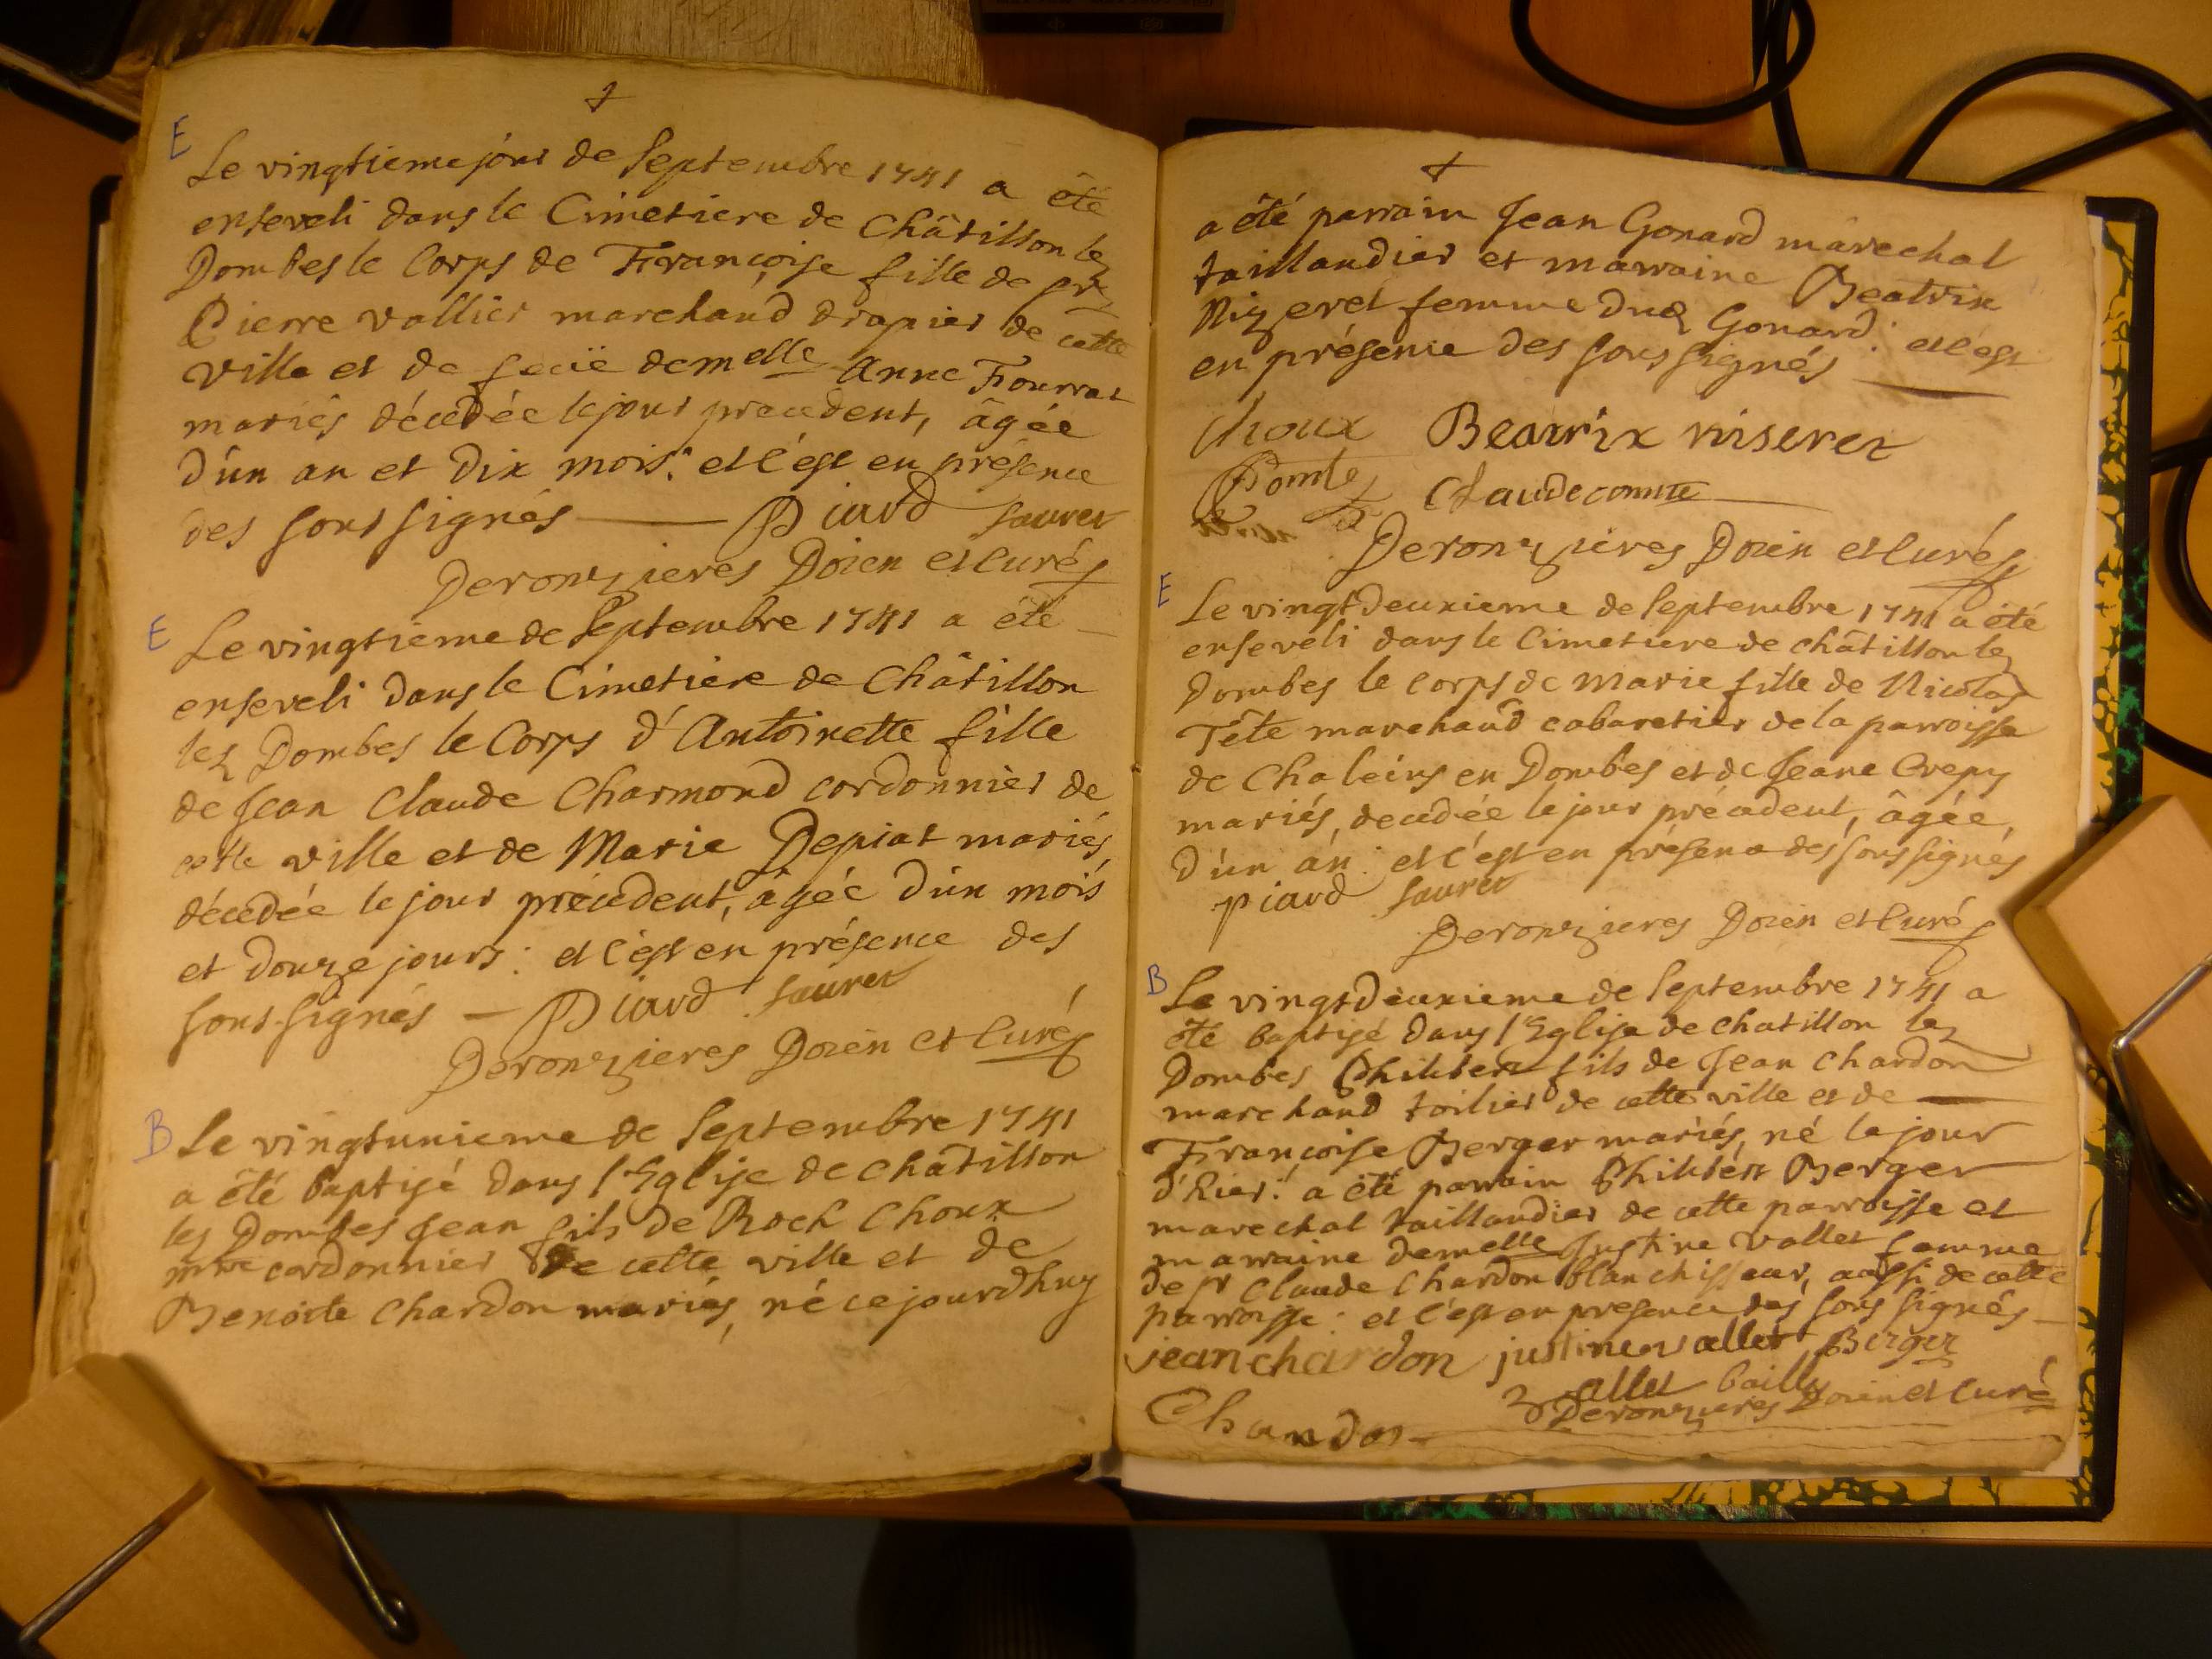 E
Le vingtieme jour de Septembre 1741 a été
enseveli dans le Cimetiere de Châtillon lez
Dombes le Corps de Françoise fille de sr
Pierre vallier marchand drapier de cette
ville et de demelle Anne Fourrat
mariés décédée le jour precedent, âgée
d'un an et dix mois: et c'est en présence
des soussignés Piard sauret
Deronzieres Doien et Curé
E
Le vingtieme de Septembre 1741 a été
enseveli dans le Cimetiere de Châtillon
lez Dombes le Corps d'Antoinette fille
de Jean Claude Charmond cordonnier de
cette ville et de Marie Depiat mariés
décédée le jour précédent, âgée d'un mois
et douze jours: et c'est en présence des
soussignés — Piard sauret
Deronzieres Doien et Curé
B
Le vingtunieme de Septembre 1741
a été baptisé dans l'Eglise de châtillon
lez Dombes Jean fils de Roch Choux
mtre cordonnier de cette ville et de
Benoite Chardon mariés, né cejourdhuy
a été parrain Jean Gonard marechal
taillandier et marraine Beatrix
Nizeret femme dud Gonard: et c'est
en présence des soussignés
Choux Beatrix niseret
Claude comte
Deronzieres Doien et Curé
E
Le vingtdeuxieme de Septembre 1741 a été
enseveli dans le Cimetiere de châtillon lez
Dombes le corps de Marie fille de Nicolas
Tête marchand cabaretier de la parroisse
de Chaleins en Dombes et de Jeane Crepy
mariés, decédée le jour précédent, âgée,
d'un an: et c'est en présence des soussignés
piard sauret
Deronzieres Doien et Curé
B
Le vingtdeuxieme de Septembre 1741 a
été baptisé dans l'Eglise de chatillon lez
Dombes Philibert fils de Jean Chardon
marchand toilier de cette ville et de
Françoise Berger mariés, né le jour
d'hier: a été parrain Philibert Berger
marechal taillandier de cette parroisse et
marraine demelle Justine vallet femme
de sr Claude Chardon blanchisseur, aussi de cette
parroisse: et c'est en presence des soussignés
jean chardon justine vallet Berger
vallet bailly
Deronzieres Doien et Curé
Chardon